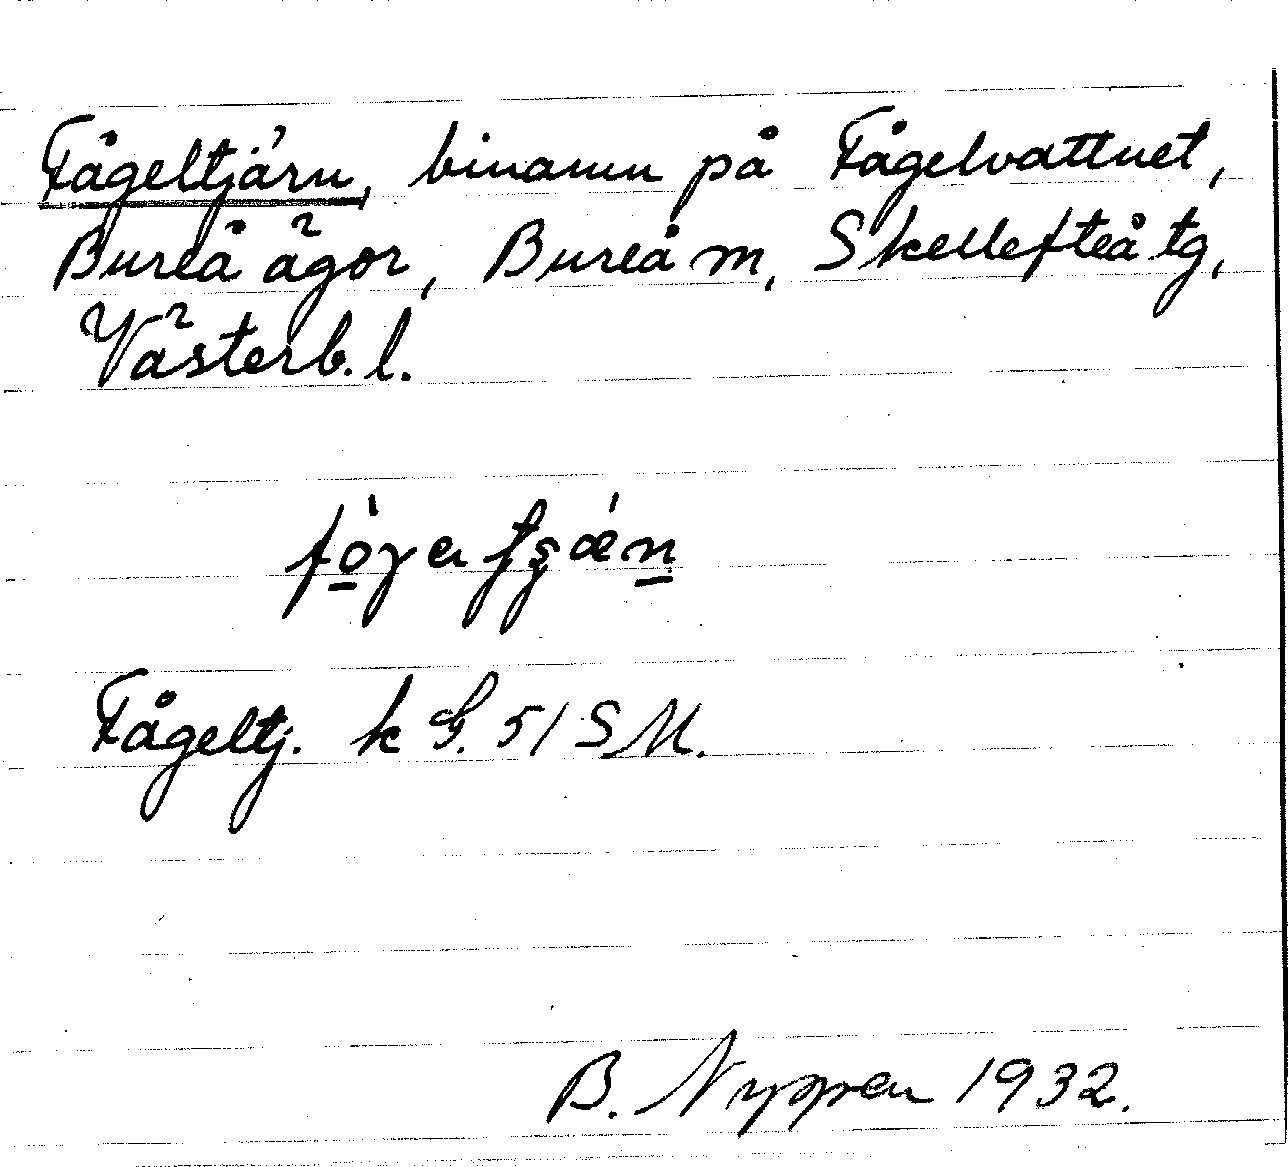 Fågeltjärn, binamn på Fågelvattnet,
Bureå ägor, Bureå m, Skellefteå tg,
Västerb. l.
Fågeltj. k G. 51 S M.
B. Nyppen 1932.